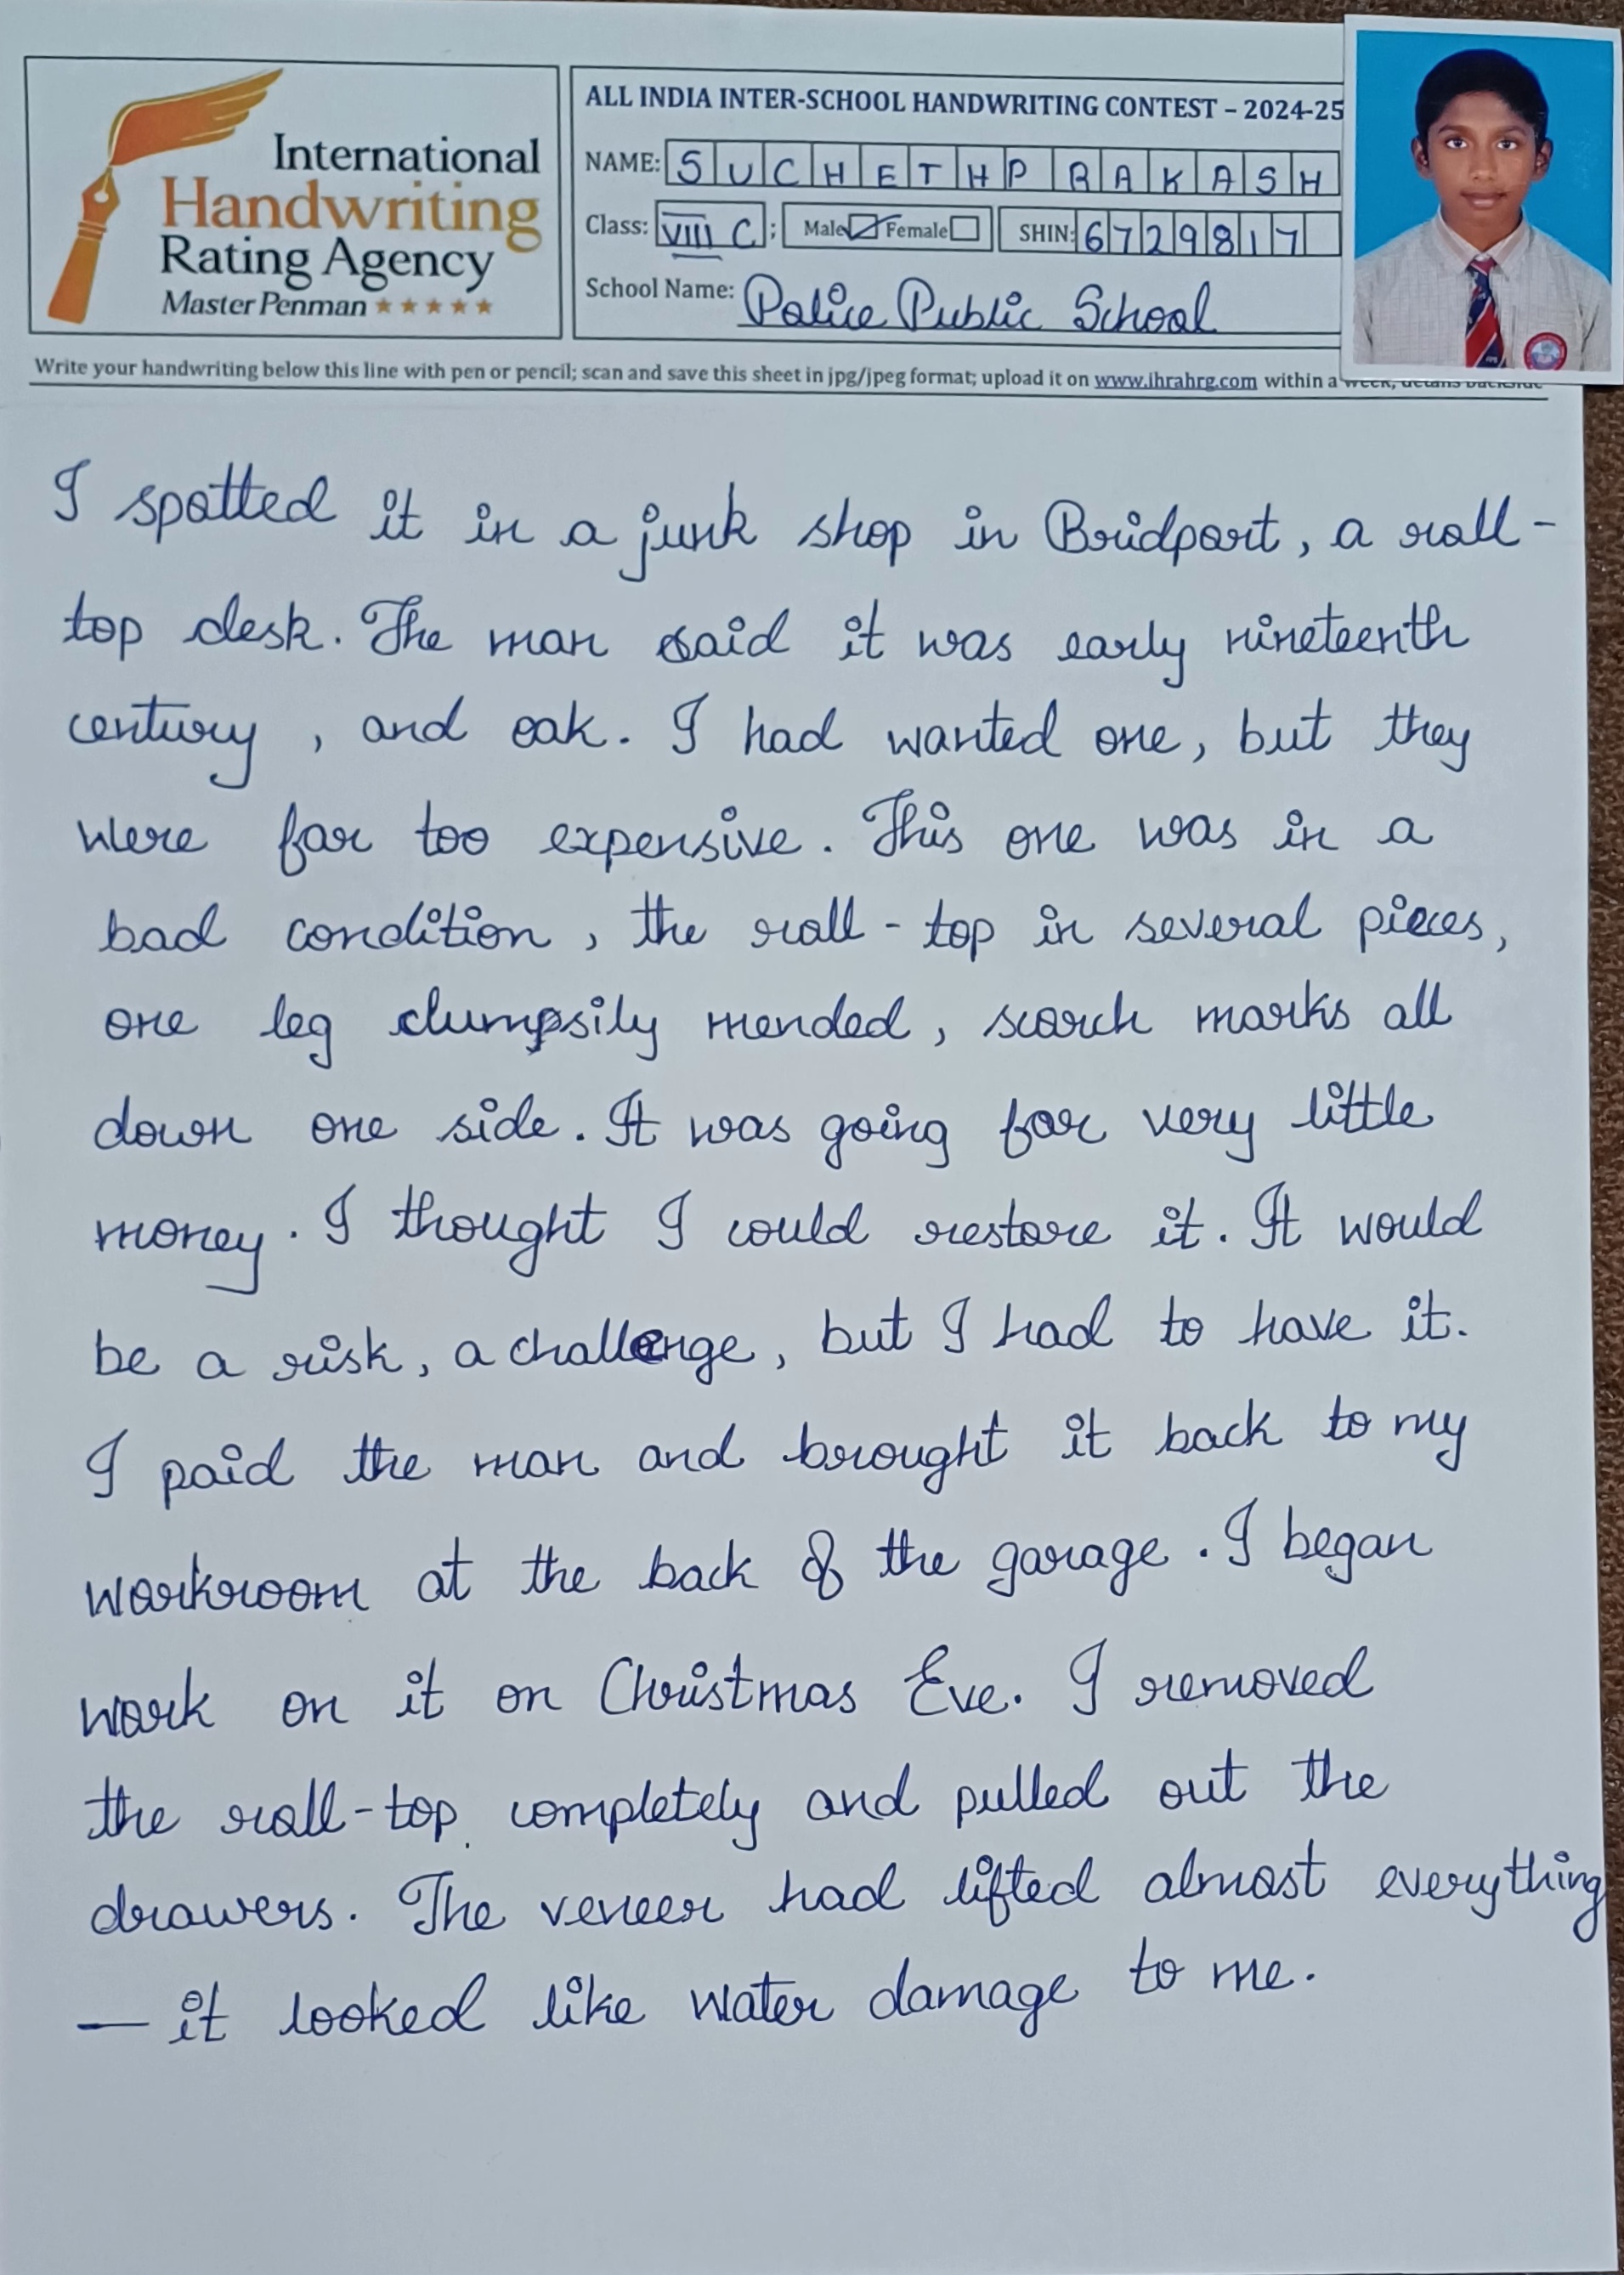 International
Handwriting
Rating Agency
Master Penman ★★★★★
ALL INDIA INTER-SCHOOL HANDWRITING CONTEST – 2024-25
NAME: SUCHETHPRAKASH
Class: VIII C; Male Female SHIN: 6729817
School Name: Police Public School
Write your handwriting below this line with pen or pencil; scan and save this sheet in jpg/jpeg format; upload it on www.ihrahrg.com within a
I spotted it in a junk shop in Bridport, a roll-
top desk. The man said it was early nineteenth
century, and oak. I had wanted one, but they
were far too expensive. This one was in a
bad condition, the roll-top in several pieces,
one leg clumpsily mended, scorch marks all
down one side. It was going for very little
money. I thought I could restore it. It would
be a risk, a challenge, but I had to have it.
I paid the man and brought it back to my
workroom at the back of the garage. I began
work on it on Christmas Eve. I removed
the roll-top completely and pulled out the
drawers. The veneer had lifted almost everything
— it looked like water damage to me.